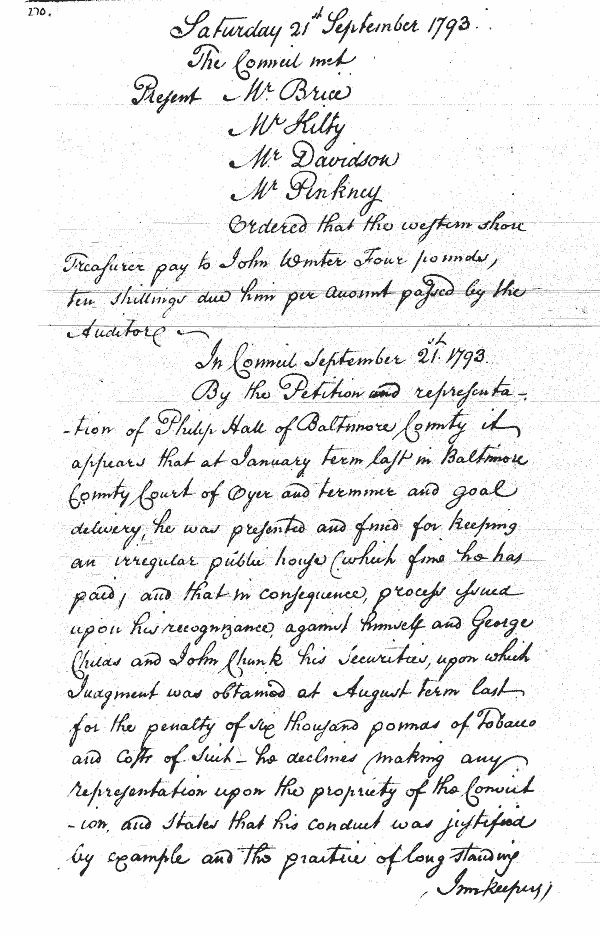 270.
Saturday 21st September 1793.
The Council met
Present Mr Brice
Mr Kilty
Mr Davidson
Mr Pinkney
Ordered that the western shore
Treasurer pay to John Winter Four pounds,
ten shillings due him per account passed by the
Auditor
In Council September 21st 1793.
By the Petition and representa-
-tion of Philip Hall of Baltimore County it
appears that at January term last in Baltimore
County Court of Oyer and terminer and goal
delivery, he was presented and fined for keeping
an irregular public house (which fine he has
paid) and that in consequence, process issued
upon his recognizance, against himself and George
Childs and John Chunk his securities, upon which
Judgment was obtained at August term last
for the penalty of six thousand pounds of Tobacco
and Costs of Suit - he declines making any
representation upon the propriety of the Convict
-ion, and states that his conduct was justified
by example and the practice of long standing
Innkeepers,